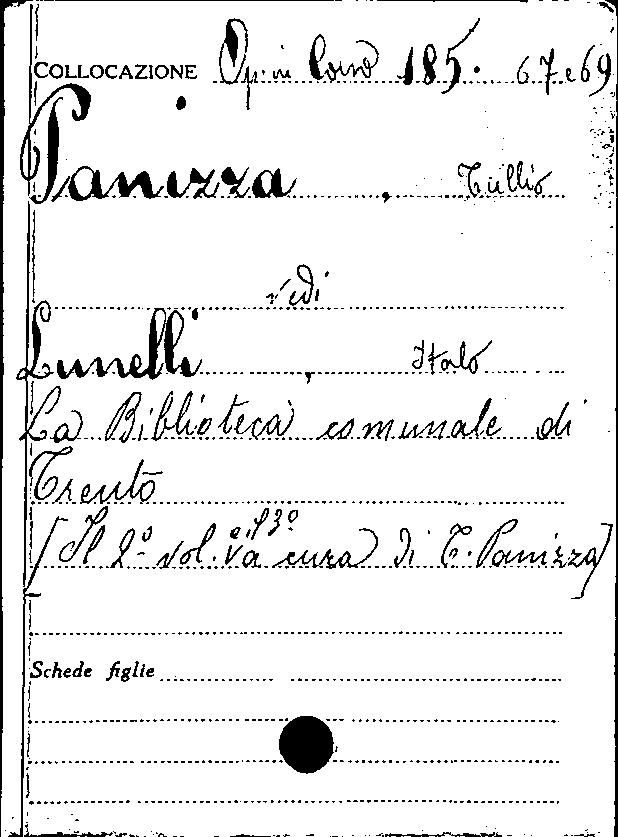 COLLOCAZIONE Op: in Corso 185. 67 e 69
Panizza, Tullio
vedi
Lunelli, Italo
La Biblioteca comunale di
Trento
[Il 2º vol. e il 3º a cura di T. Panizza]
Schede figlie